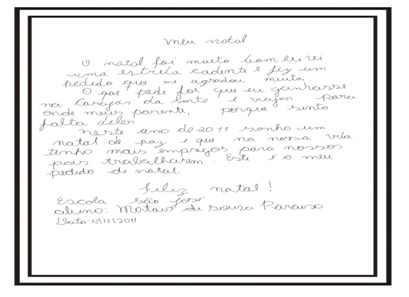 meu natal
O natal foi muito bom eu vi
uma estrela cadente e fiz um
pedido que me agradou muito.
O que pedi foi que eu ganhasse
na da sorte e viajar para
onde meus parente, porque sinto
falta deles
neste ano de 2011 sonho um
natal de paz e que na nossa vila
tenho mais empregos para nossos
pais trabalharem Este é o meu
pedido de natal.
Feliz natal!
Escola São José
aluno: de souza Paraiso
Data